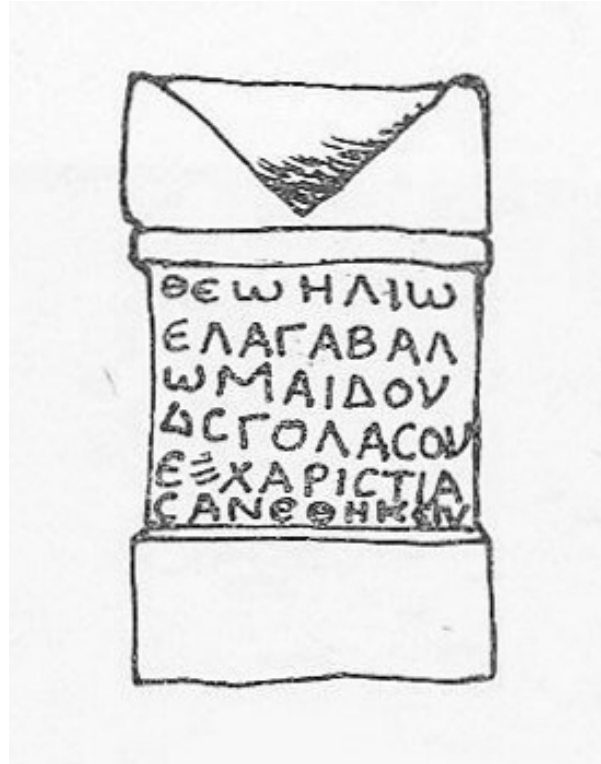 ΘΕωΗΛΙω
ΕΛΑΓΑΒΑΛ
ωΜΑΙΔΟΥ
ΔϹΓΟΛΑϹΟΥ
ΕΞΧΑΡΙϹΤΙΑ
ϹΑΝΕΘΗΚΕΝ